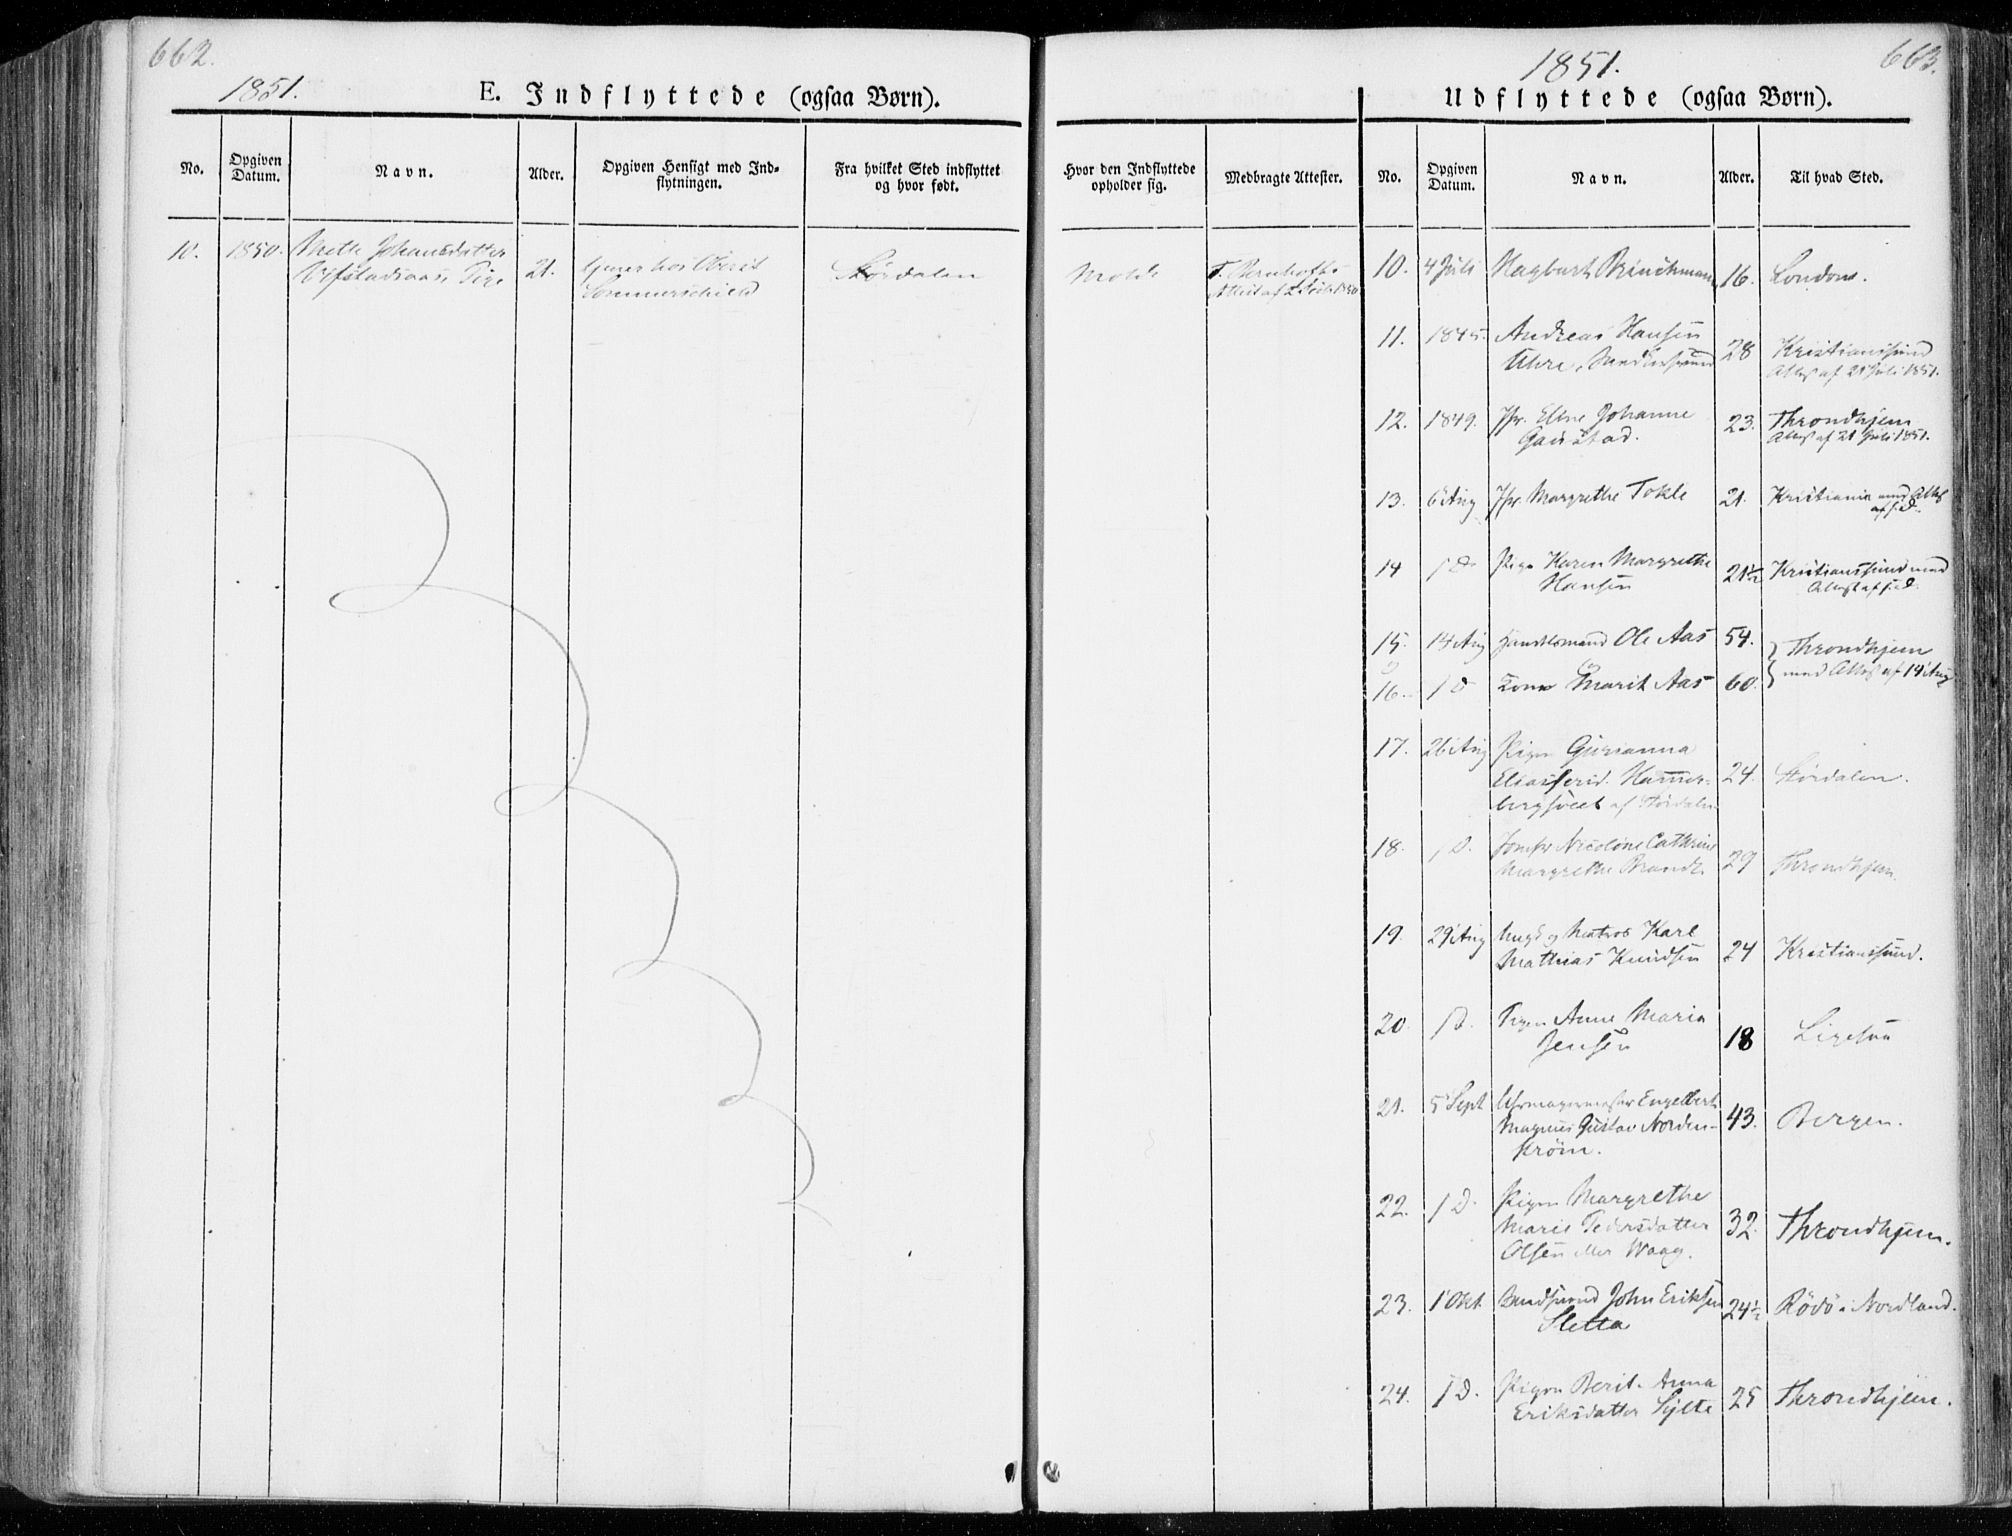 662.
1851.
E. Indflyttede (ogsaa Børn).
No.
Opgiven Datum.
Navn.
Alder.
Opgiven Hensigt med Ind-
flytningen.
Fra hvilket Sted indflyttet
og hvor født.
10. 1850. Mette Johansdatter
Pige 21. tjener hos Oberst
Sommerschield
Størdalen
1851.
663.
Udflyttede (ogsaa Børn).
Hvor den Indflyttede
opholder sig.
Medbragte Attester.
No.
Opgiven
Datum.
Navn.
Alder.
Til hvad Sted.
Molde
Attest af
10. 4 Juli Hagbart Brinchmann 16. London.
11. 1845. Andreas Hansen
Uhre, 28 Kristianssund
Attest af 21 Juli 1851.
12. 1849. Jfr. Eline Johanne
Gaustad. 23. Throndhjem
Attest af 21 Juli 1851.
13. 6 Aug Jfr. Margrethe Tokle 21. Kristiania med Attest
af s. d.
14 s D. Pige Karen Margrethe
Hansen 21½ Kristianssund med
Attest af s. d.
15. 14 Aug Handelsmand Ole Aas 54. Throndhjem
16. s D Kone Marit Aas 60. med Attest af 14 Aug
17. 26 Aug Pigen Gjerianna
24. Størdalen.
af Størdalen
18. s D. Jomfr Nicoline Cathrine
Margrethe Brandt 29 Throndhjem.
19. 29 Aug Ungk. og Matros Karl
Mathias Knudsen 24 Kristianssund.
20. s D. Pigen Anne Maria
Jensen 18 Ligesaa
21. 5 Sept Uhrmagermester Engelbert
Magnus Gustav Norden-
strøm. 43. Bergen.
22. s D. Pigen Margrethe
Marie Pedersdatter
Olsen eller Waag. 32. Throndhjem.
23. 1 Okt. John Eriksen
Sletta 24½ Rödö i Nordland.
24. s D. Pigen Berit Anna
Eriksdatter Sylte 25 Throndhjem.